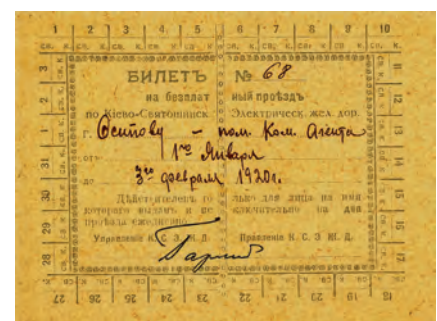 1 2 3 4 5 6 7 8 9 10
БИЛЕТЪ № 68
на безплат ный проѣздъ
по Кіево-Святошинск Электрическ. жел. дор.
г. Осипову — пом. Ком. Агента
от 1го Января
до 3го февраля 1920г.
Дѣйствителенъ то лько для лица на имя
котораго выданъ и не исключительно на два
проѣзда ежедневно
Управленіе К. С. Э. Ж. Д. Правленіе К. С. Э. Ж. Д.
11
12
13
14
15
16
17
18
19
20
21
22
23
24
25
26
27
28
29
30
31
1
2
3